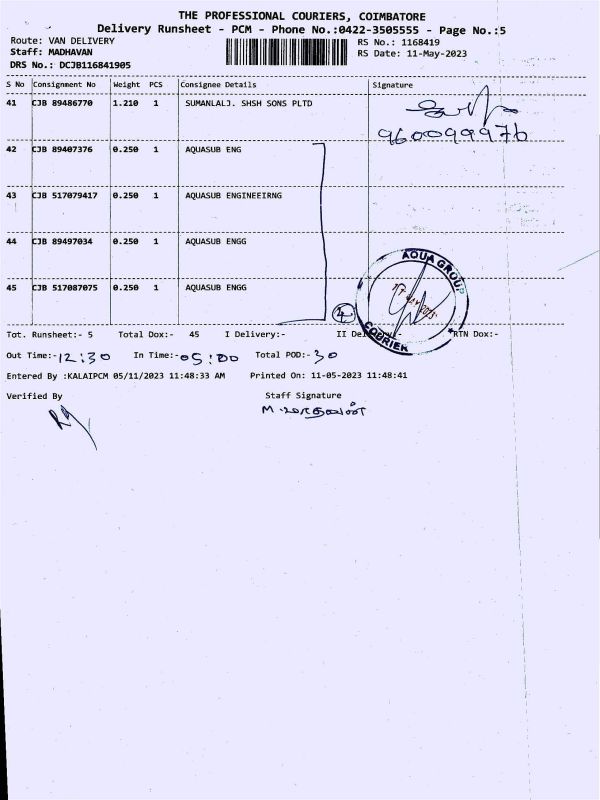 THE PROFESSIONAL COURIERS, COIMBATORE
Delivery Runsheet - PCM - Phone No.:0422-3505555 - Page No.:5
Route: VAN DELIVERY RS No.: 1168419
Staff: MADHAVAN RS Date: 11-May-2023
DRS No.: DCJB116841905
S No Consignment No Weight PCS Consignee Details Signature
41 CJB 89486770 1.210 1 SUMANLALJ. SHSH SONS PLTD
9600999976
42 CJB 89407376 0.250 1 AQUASUB ENG
43 CJB 517079417 0.250 1 AQUASUB ENGINEEIRNG
44 CJB 89497034 0.250 1 AQUASUB ENGG
AQUA GROUP
45 CJB 517087075 0.250 1 AQUASUB ENGG
4
COURIER
Tot. Runsheet:- 5 Total Dox:- 45 I Delivery:- II De RTN Dox:-
Out Time:-12:30 In Time:-05:00 Total POD:-30
Entered By :KALAIPCM 05/11/2023 11:48:33 AM Printed On: 11-05-2023 11:48:41
Verified By Staff Signature